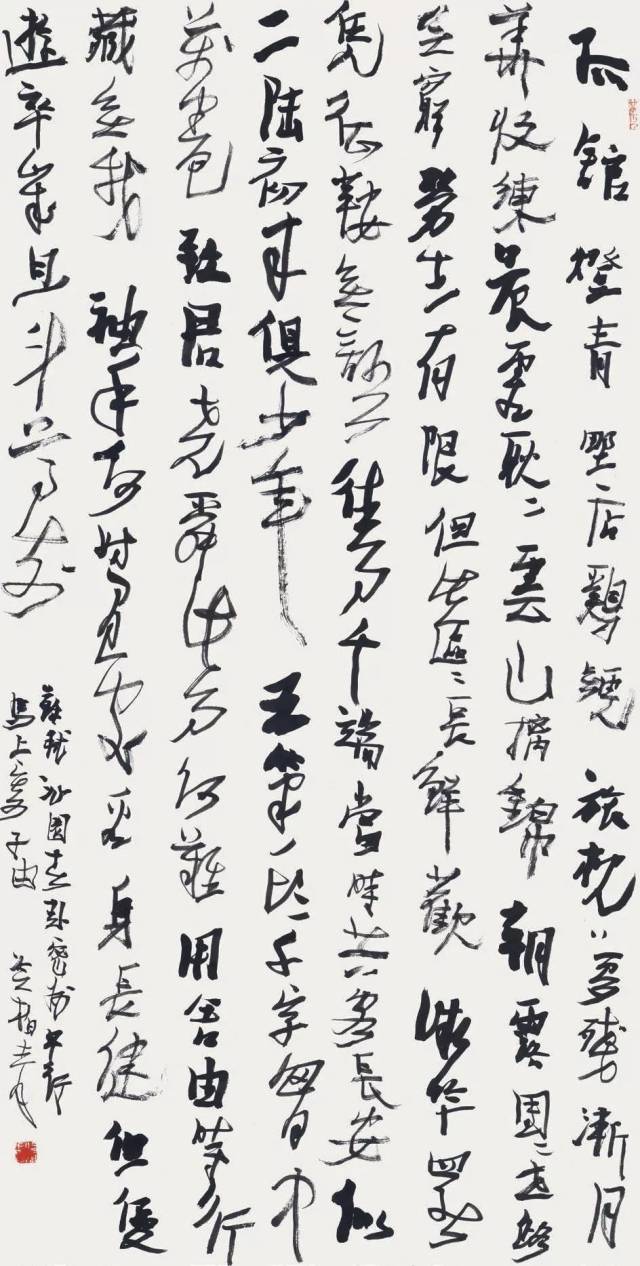 孤館燈青野店鷄號旅枕夢殘漸月
華收練晨霜耿々雲山摛錦朝露團々世路
無窮勞生有限似此區々長鮮歡微吟罷
憑征鞍無語往事千端當時共客長安似
二陸初來俱少年有筆頭千字胸中
萬卷致君堯舜此事何難用舍由時行
藏在我袖手何妨閑處看身長健但優
遊卒歲且斗尊前
蘇軾沁園春赴密州早行
馬上寄子由